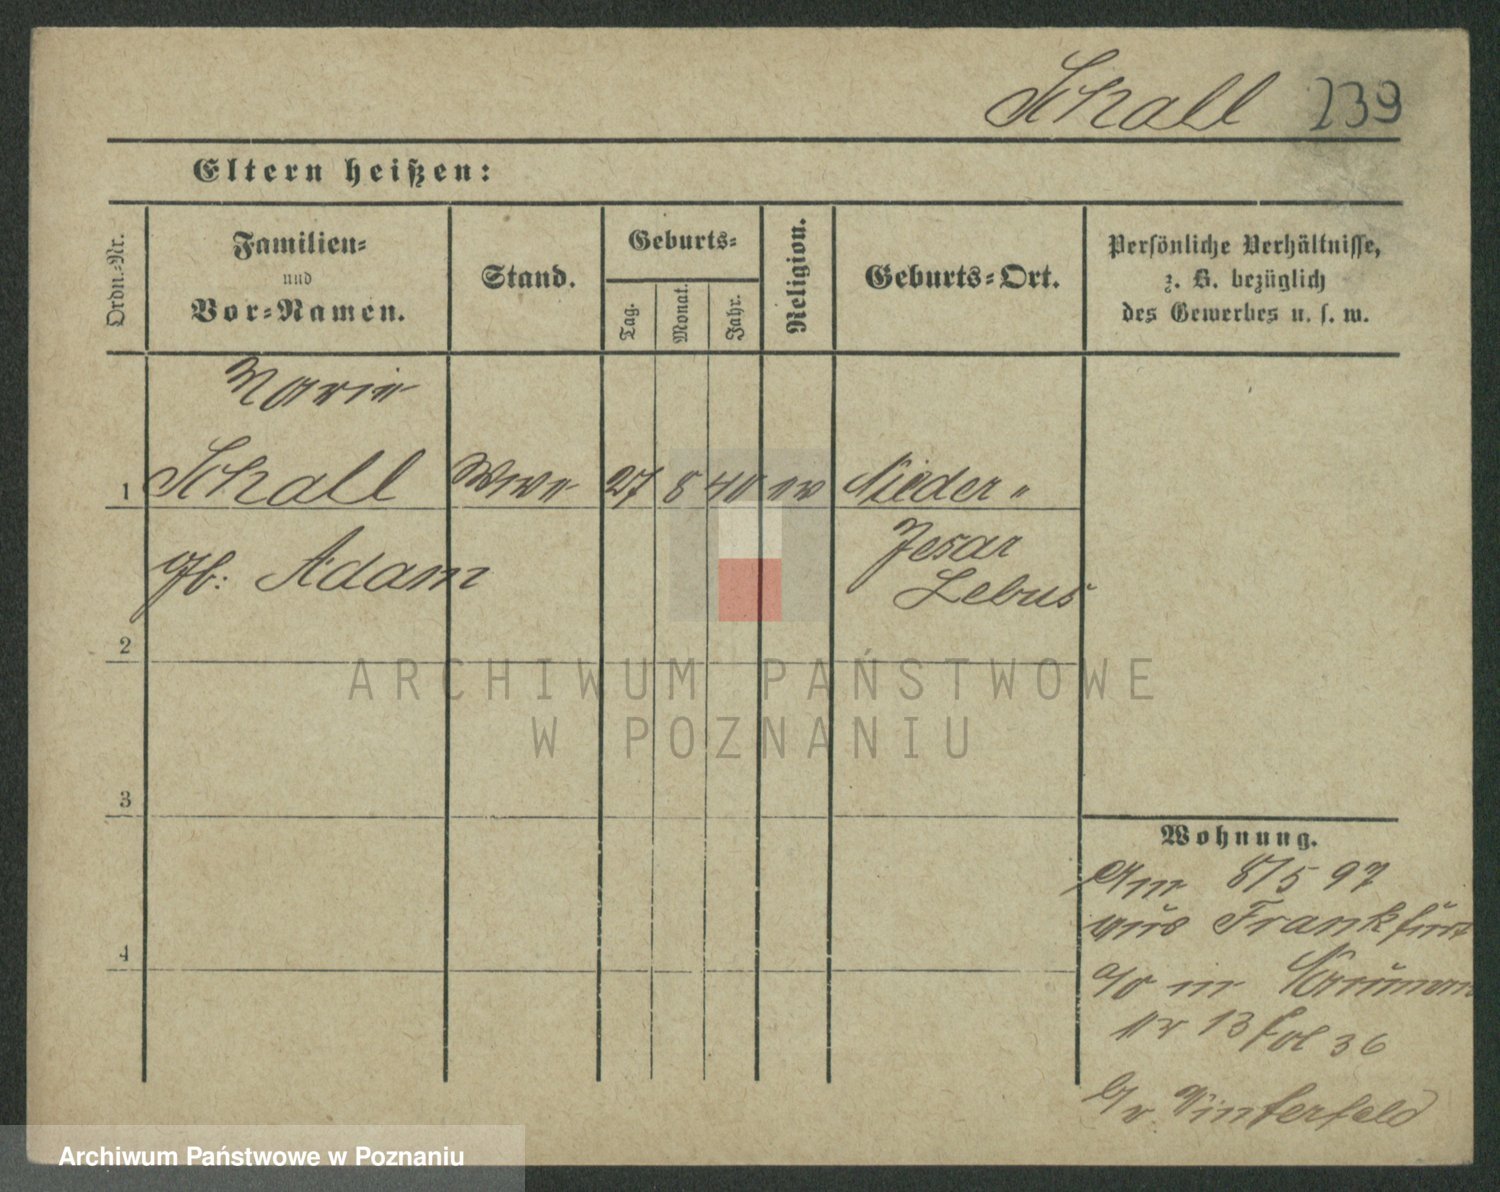 Schall 239
Eltern heißen:
Ordn.-Nr.
Familien-
und
Vor-Namen.
Stand.
Geburts-
Tag.
Monat.
Jahr.
Religion.
Geburts-Ort.
Persönliche Verhältnisse,
z. B. bezüglich
des Gewerbes u. s. w.
Marie
1 Schall Wwe 27 8 40 ev Nieder "
gb: Adam Jesar
Lebus
2
3
4
ARCHIWUM PAŃSTWOWE
W POZNANIU
Wohnung.
8/5 97
aus Frankfurt
a/O in
13 fol 36
b/v. Winterfeld
Archiwum Państwowe w Poznaniu